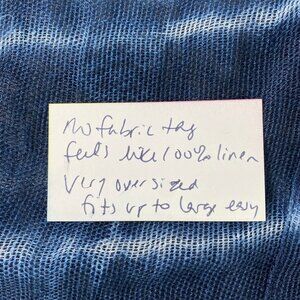 no fabric tag
feels like 100% linen
Very oversized
fits up to large easy